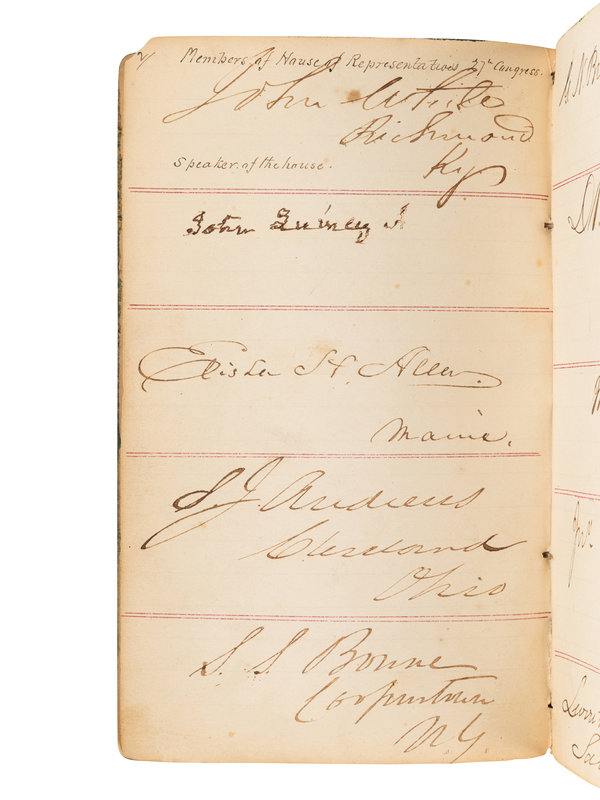 2
Members of House of Representatives 27th Congress.
John White
Richmond
Ky
Speaker of the house.
John Quincy
Elisha H. Allen.
Maine.
S J Andrews
Cleveland
Ohio
S. S. Bowne
Cooperstown
N.Y.